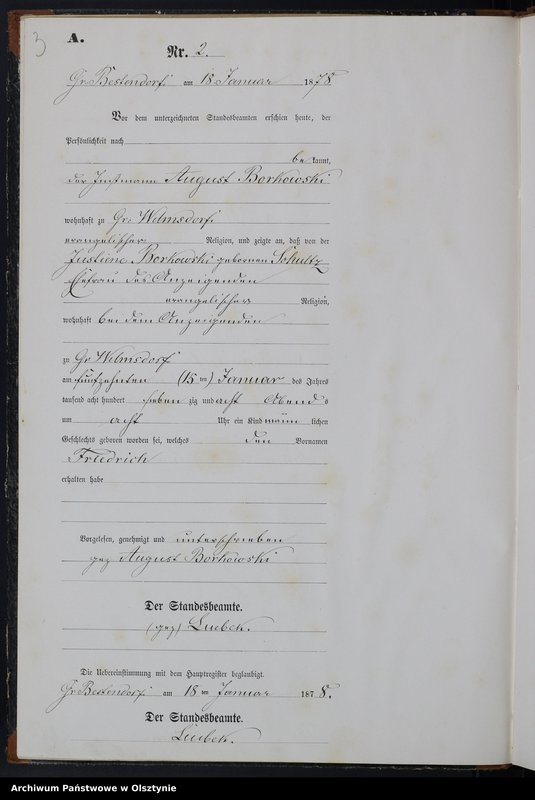 3
A.
Nr. 2.
Gr Bestendorf am 18 Januar 1878
Vor dem unterzeichneten Standesbeamten erschien heute, der
Persönlichkeit nach
be kannt,
der Instmann August Borkowski
wohnhaft zu Gr. Wilmsdorf
evangelischer Religion, und zeigte an, daß von der
Justiene Borkowski gebornen Schultz
Ehefrau des Anzeigenden
evangelischer Religion,
wohnhaft bei dem Anzeigenden
zu Gr Wilmsdorf
am fünfzehnten (15 ten) Januar des Jahres
tausend acht hundert sieben zig und acht Abends
um acht Uhr ein Kind männ lichen
Geschlechts geboren worden sei, welches den Vornamen
Friedrich
erhalten habe
Vorgelesen, genehmigt und unterschrieben
gez August Borkowski
Der Standesbeamte.
(gez) Luebeck.
Die Uebereinstimmung mit dem Hauptregister beglaubigt.
Gr Bestendorf am 18 ten Januar 1878.
Der Standesbeamte.
Luebeck.
Archiwum Państwowe w Olsztynie